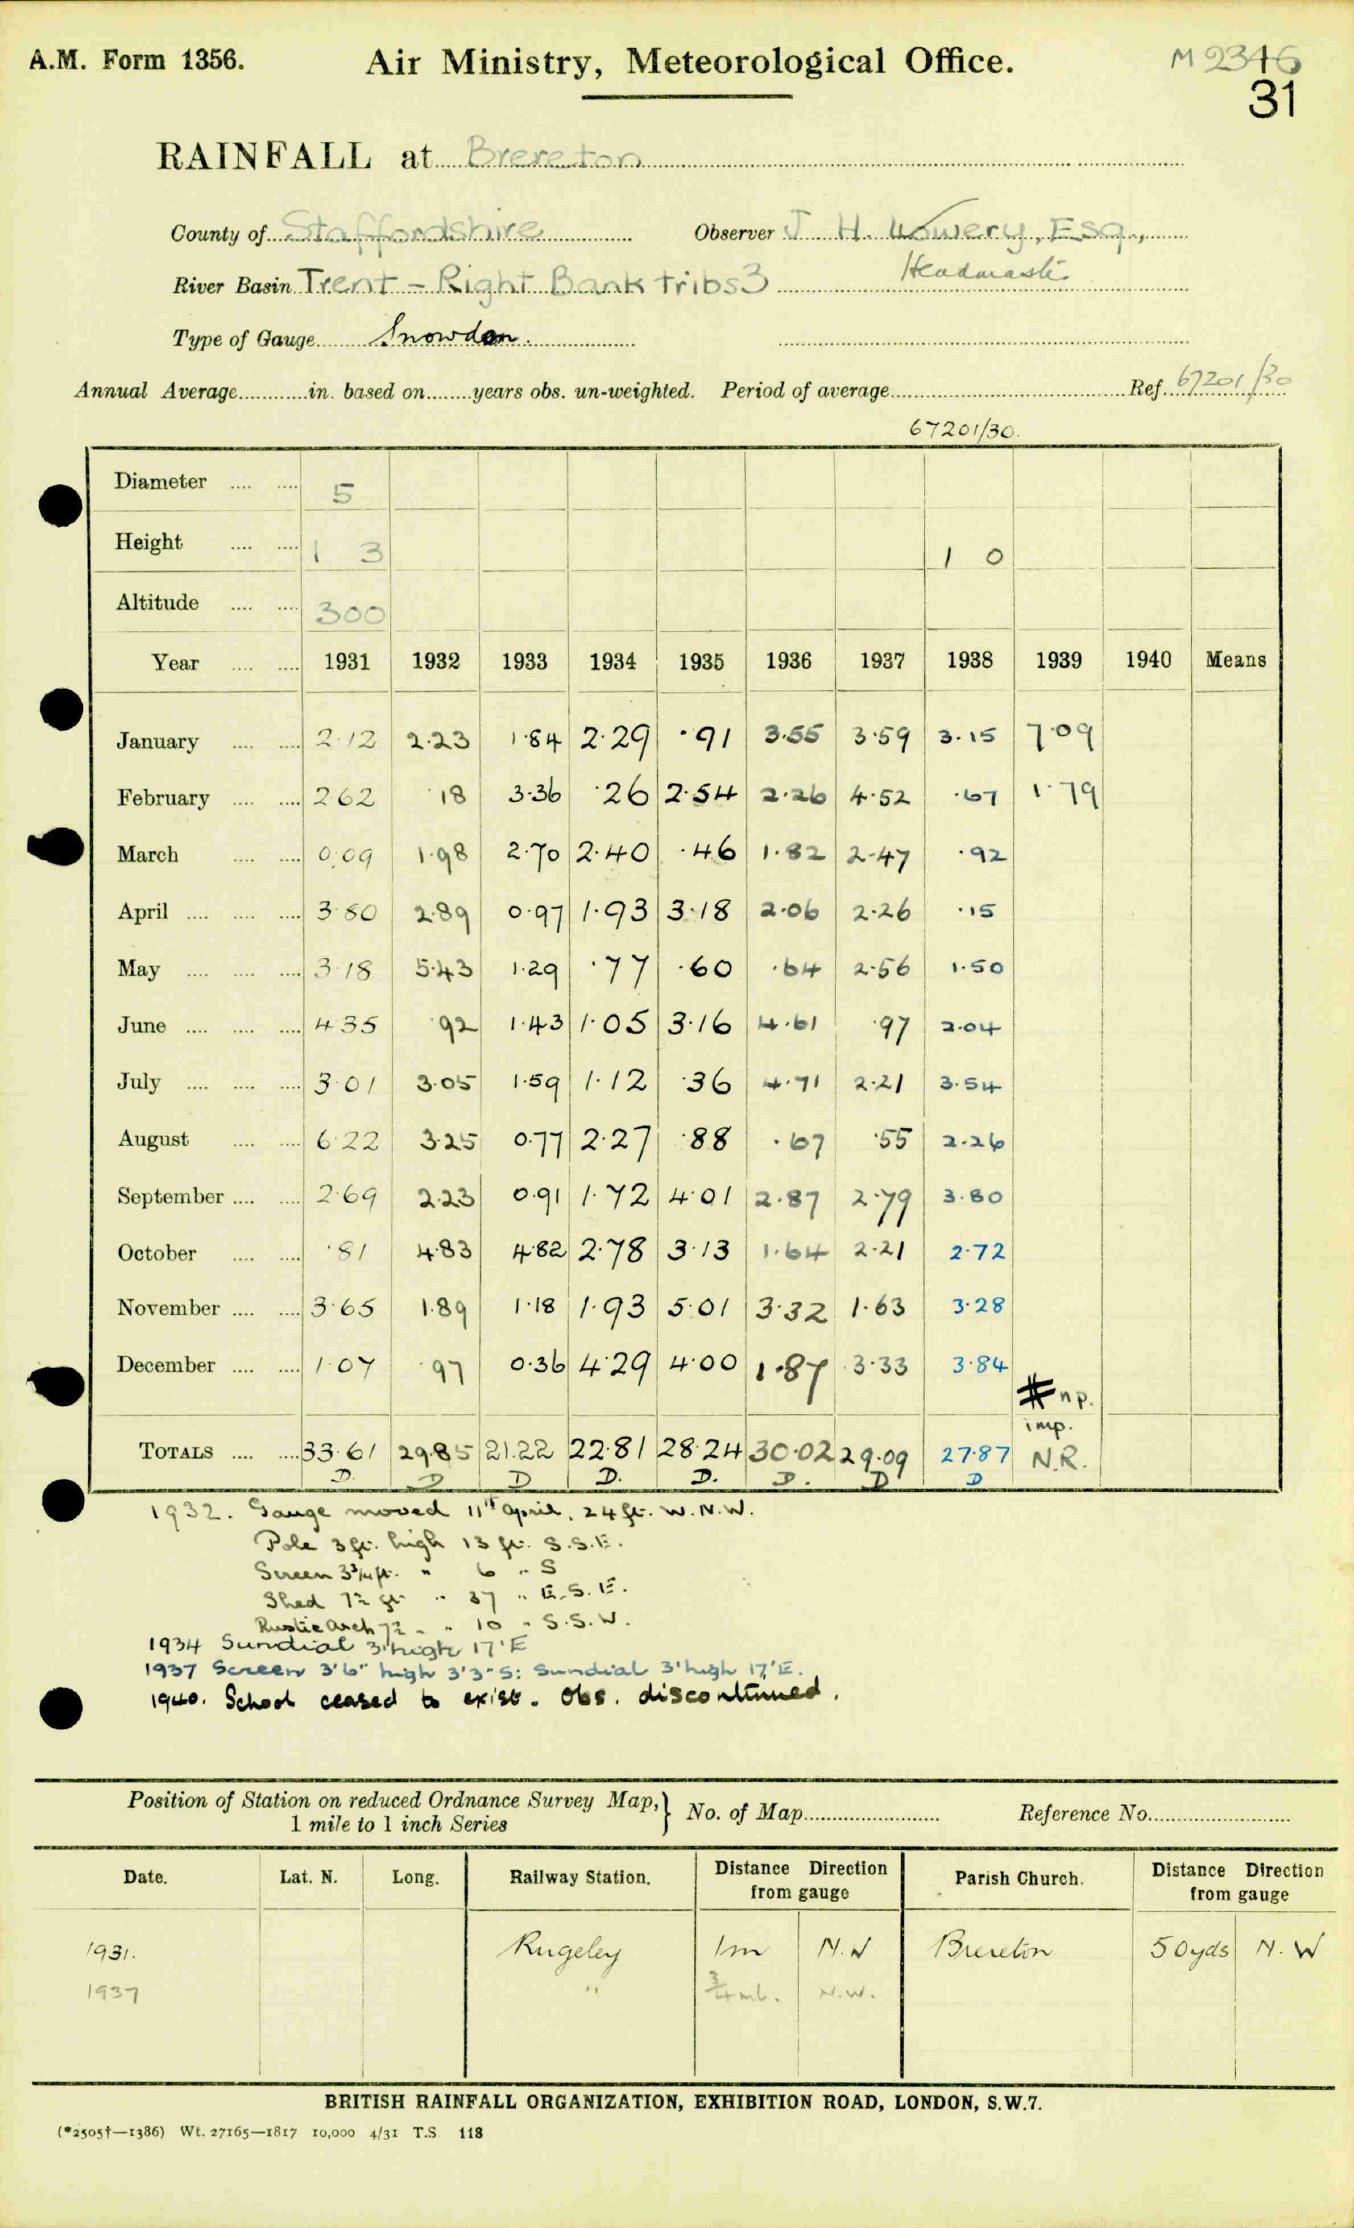 A.M. Form 1356. Air Ministry, Meteorological Office. M 2346
31
RAINFALL at Brereton
County of Staffordshire Observer J. H. Lowery, Esq.,
River Basin Trent - Right Bank tribs 3 Headmaster
Type of Gauge Snowdon.
Annual Average in. based on years obs. un-weighted. Period of average Ref. 67201/30
67201/30.
Diameter 5
Height 1 3 1 0
Altitude 300
Year 1931 1932 1933 1934 1935 1936 1937 1938 1939 1940 Means
January 2.12 2.23 1.84 2.29 .91 3.55 3.59 3.15 7.09
February 2.62 .18 3.36 .26 2.54 2.26 4.52 .67 1.79
March 0.09 1.98 2.70 2.40 .46 1.82 2.47 .92
April 3.80 2.89 0.97 1.93 3.18 2.06 2.26 .15
May 3.18 5.43 1.29 .77 .60 .64 2.56 1.50
June 4.35 .92 1.43 1.05 3.16 4.61 .97 2.04
July 3.01 3.05 1.59 1.12 .36 4.71 2.21 3.54
August 6.22 3.25 0.77 2.27 .88 .67 .55 2.26
September 2.69 2.23 0.91 1.72 4.01 2.87 2.79 3.80
October .81 4.83 4.82 2.78 3.13 1.64 2.21 2.72
November 3.65 1.89 1.18 1.93 5.01 3.32 1.63 3.28
December 1.07 .97 0.36 4.29 4.00 1.87 3.33 3.84
np.
imp.
TOTALS 33.61 29.85 21.22 22.81 28.24 30.02 29.09 27.87 N.R.
D. D D D. D. D. D D
1932. Gauge moved 11th April, 24 ft. W.N.W.
Pole 3 ft. high 13 ft. S.S.E.
Screen 3¾ ft. " 6 " S
Shed 7½ ft " 37 " E.S.E.
Rustic Arch 7½ " " 10 " S.S.W.
1934 Sundial 3' high 17' E
1937 Screen 3'6" high 3'3" S: Sundial 3' high 17' E.
1940. School ceased to exist. Obs. discontinued.
Position of Station on reduced Ordnance Survey Map, } No. of Map Reference No.
1 mile to 1 inch Series
Date. Lat. N. Long. Railway Station. Distance Direction from gauge Parish Church. Distance Direction from gauge
1931. Rugeley 1m N.W Brereton 50yds N.W
1937 " ¾ ml. N.W.
BRITISH RAINFALL ORGANIZATION, EXHIBITION ROAD, LONDON, S.W.7.
(*2505†—1386) Wt. 27165—1817 10,000 4/31 T.S 118